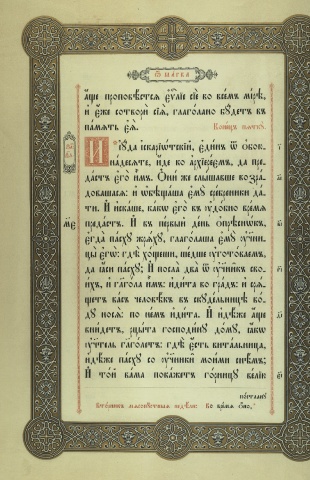 Ѿ МАРКА
а҆́ще проповѣ́стсѧ є҆ѵⷢ҇лїе сїѐ во все́мъ мі́рѣ,
и҆ є҆́же сотворѝ сїѧ̀, глаго́лано бꙋ́детъ въ
па́мѧть є҆ѧ̀. Коне́цъ пѧткꙋ̀.
И҆ і҆ꙋ́да і҆скарїѡ́тскїй, є҆ди́нъ ѿ ѻ҆бою-
на́десѧте, и҆́де ко а҆рхїере́ѡмъ, да пре-
да́стъ є҆го̀ и҆̀мъ. Ѻ҆ни́ же слы́шавше возра́-
довашасѧ: и҆ ѡ҆бѣща́ша є҆мꙋ̀ сре́бреники да-
ти. И҆ и҆ска́ше, ка́кѡ є҆го̀ въ ᲂу҆до́бно вре́мѧ
преда́стъ. И҆ въ пе́рвый де́нь ѡ҆прѣснѡ́къ,
є҆гда̀ па́схꙋ жрѧ́хꙋ, глаго́лаша є҆мꙋ̀ ᲂу҆чн҃цы̀
є҆гѡ̀: гдѣ̀ хо́щеши, ше́дше ᲂу҆гото́ваемъ,
да ꙗ҆́си па́схꙋ; И҆ посла̀ два̀ ѿ ᲂу҆чн҃къ свои́-
хъ, и҆ глаго́ла и҆́ма: и҆ди́та во гра́дъ: и҆ срѧ́-
щетъ ва́съ человѣ́къ въ скꙋде́льницѣ во́-
дꙋ носѧ̀: по не́мъ и҆ди́та. И҆ и҆дѣ́же а҆́ще
вни́детъ, рцы́та господи́нꙋ до́мꙋ, ꙗ҆́кѡ
ᲂу҆чт҃ль глаго́летъ: гдѣ̀ є҆́сть вита́льница,
и҆дѣ́же па́схꙋ со ᲂу҆чн҃ки̑ мои́ми снѣ́мъ;
И҆ то́й ва́ма пока́жетъ го́рницꙋ ве́лїю
по́стланꙋ
Вто́рникъ мѧсопꙋ́стныѧ недѣ́ли: Во вре́мѧ ѻ҆́но,